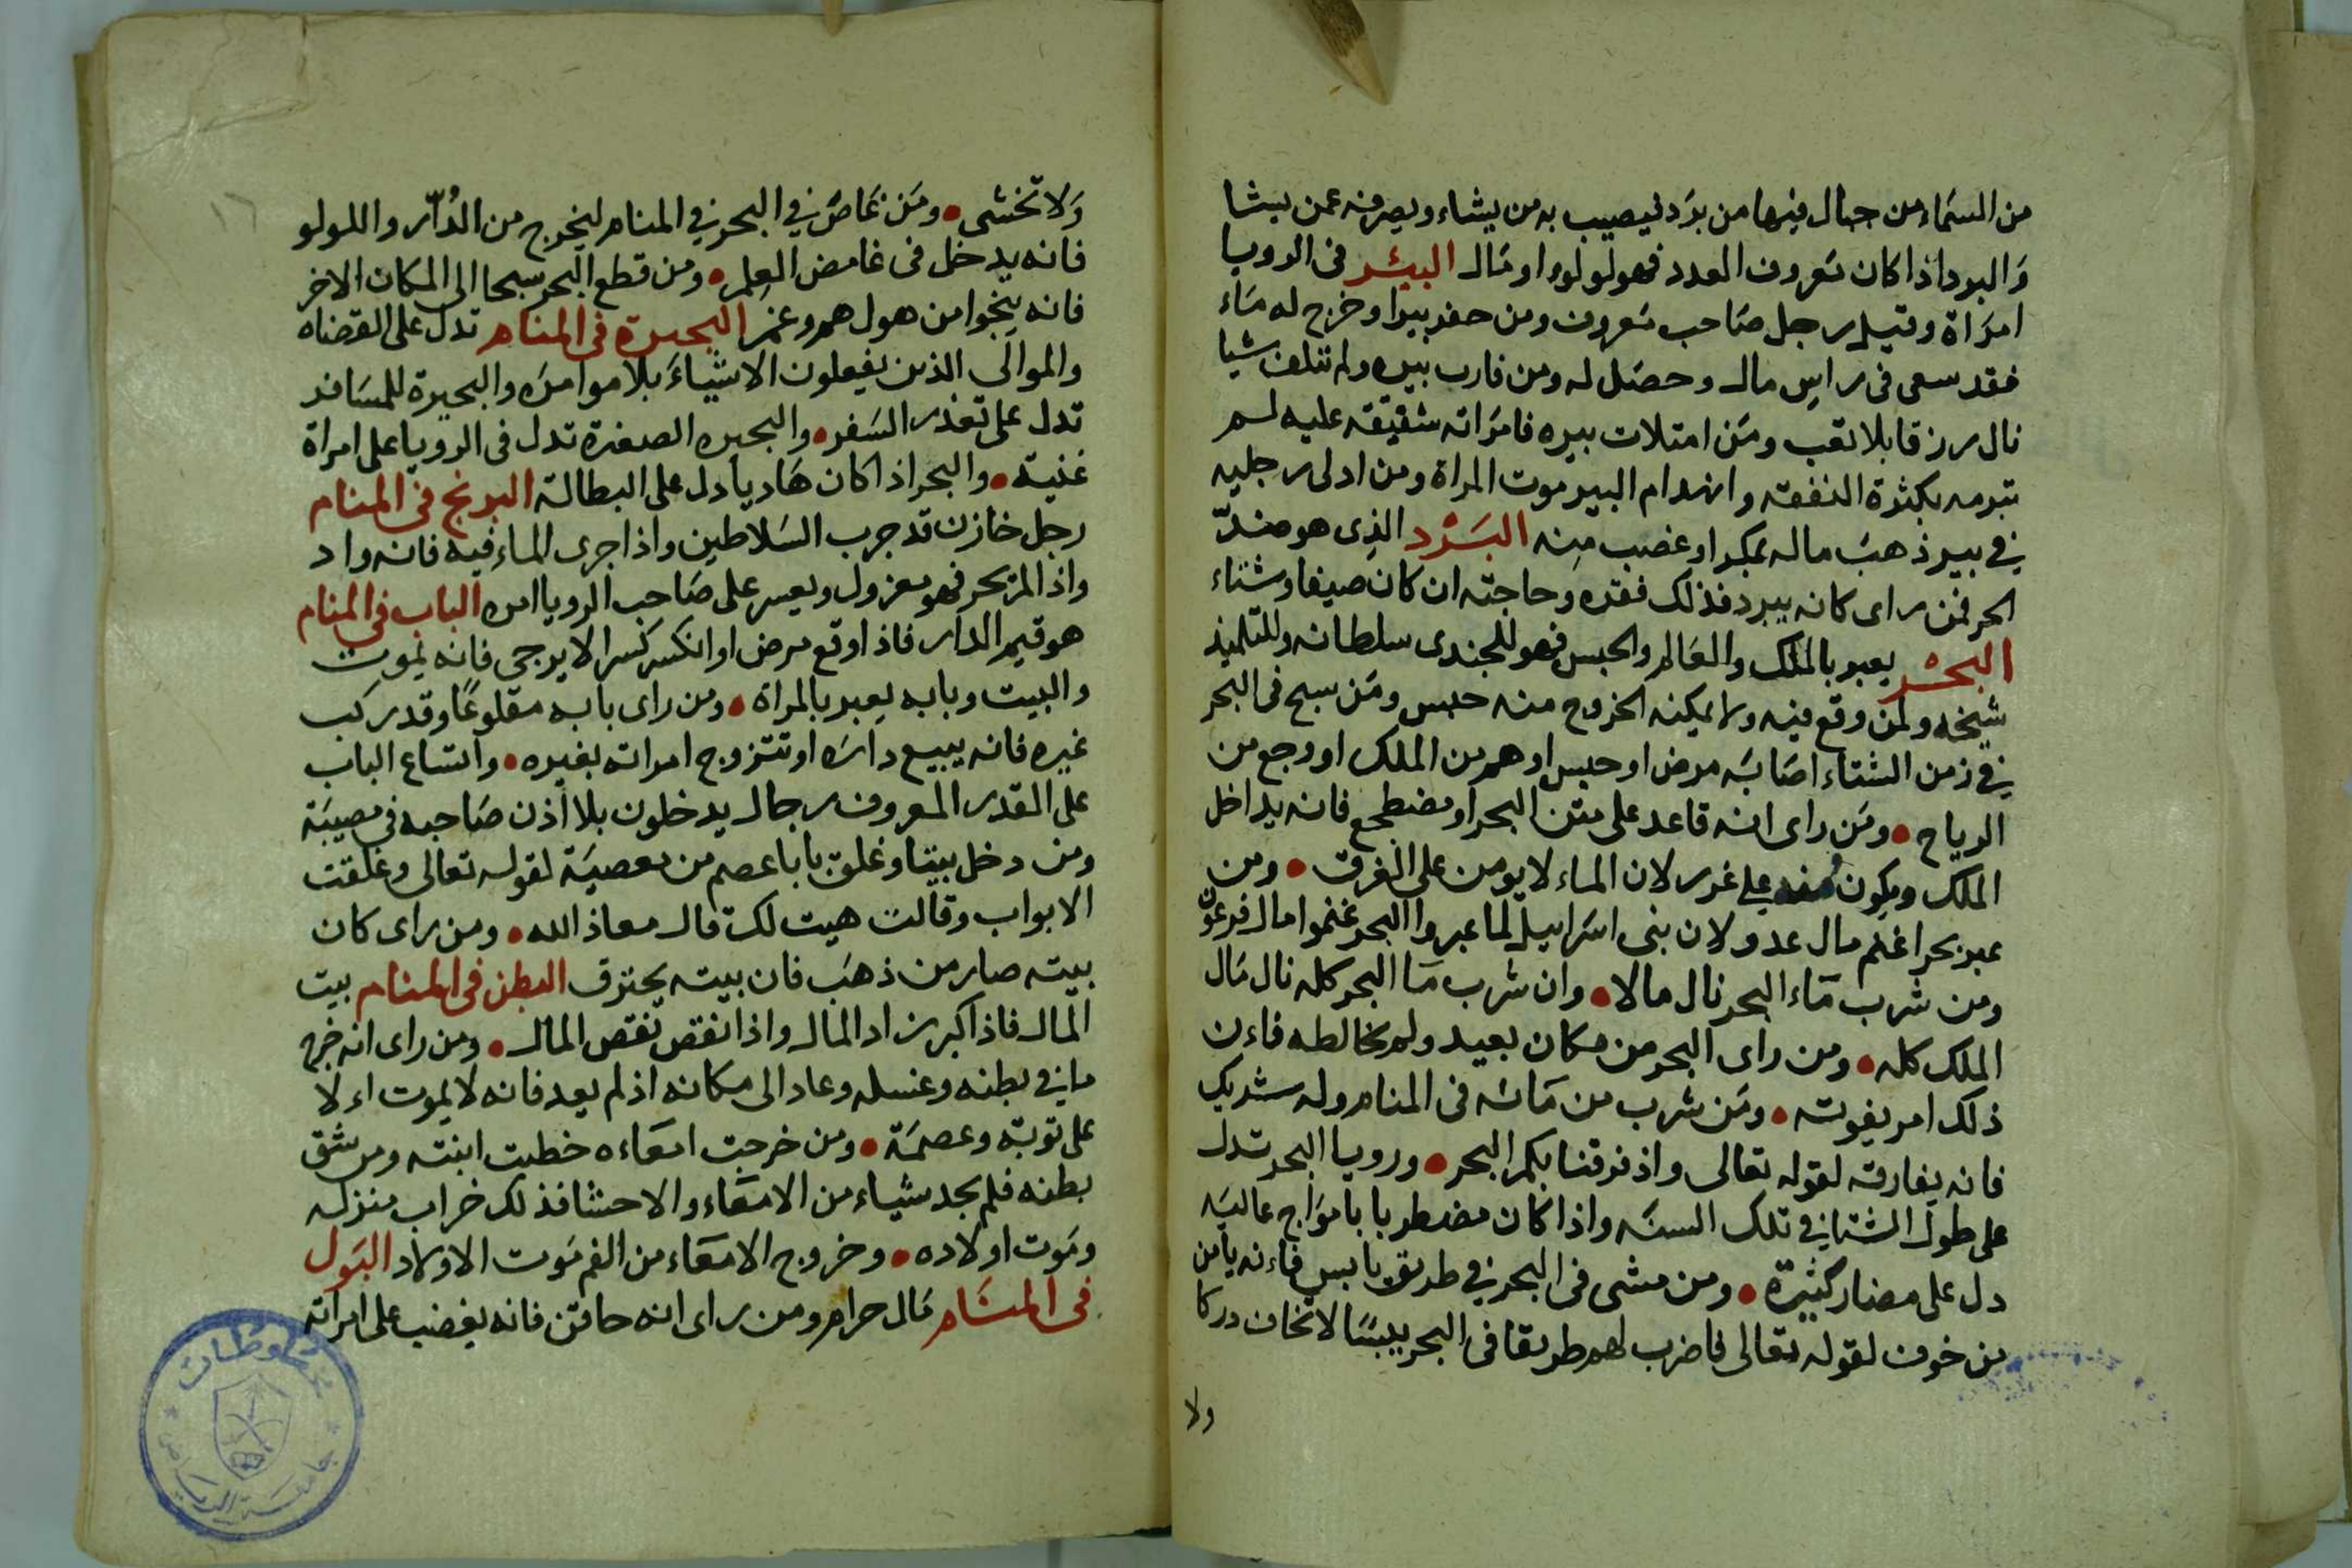 من السماء من جبال فيها من برد فيصيب به من يشاء ويصرفه عمن يشا
والبرد اذا كان معروف العدد فهو لولو او مال البئر فى الرويا
امراة وقيل رجل صاحب معروف ومن حفر بيرا وخرج له ماء
فقد سعى فى راس مال وحصل له ومن قارب بيره ولم تتلف شيا
نال رزقا بلا تعب ومن امتلات بيره فامراته شفيقة عليه لم
تبرمه بكثرة النفقة وانهدام البير موت المراة ومن ادلى رجليه
في بير ذهب ماله بمكر او غصب منه البرد الذى هو ضد
الحر فمن راى كانه يبرد فذلك فقره وحاجته ان كان صيفا وشتاء
البحر يعبر بالملك والعالم والحبس فهو للجندى سلطانه وللتلميذ
شيخه ولمن وقع فيه ولا يمكنه الخروج منه حبس ومن سبح فى البحر
في زمن الشتاء اصابه مرض او حبس او هم من الملك او وجع من
الرياح • ومن راى انه قاعد على متن البحر او مضطجع فانه يداخل
الملك ويكون منه على غرر لان الماء لا يومن على الغرق • ومن
عبر بحرا غنم مال عدو لان بنى اسراييل لما عبروا البحر غنموا مال فرعون
ومن شرب ماء البحر نال مالا • وان شرب ما البحر كله نال مال
الملك كله • ومن راى البحر من مكان بعيد ولم يخالطه فاءن
ذلك امر يفوته • ومن شرب من مائه فى المنام وله شريك
فانه يفارقه لقوله تعالى واذ فرقنا بكم البحر • ورويا البحر تدل
على طول الشتا في تلك السنه واذا كان مضطربا بامواج عاليه
دل على مضار كثيرة • ومن مشى فى البحر في طريق يابس فاءنه يامن
من خوف لقوله تعالى فاضرب لهم طريقا فى البحر يبسا لا تخاف دركا
ولا
١٦
ولا تخشى • ومن غاص في البحر في المنام ليخرج من الدر واللولو
فانه يدخل فى غامض العلم • ومن قطع البحر سبحا الى المكان الاخر
فانه ينجوا من هول هم وغم البحيرة فى المنام تدل على القضاه
والموالى الذين يفعلون الاشياء بلا موامره والبحيرة للمسافر
تدل على تعذر السفر • والبحيره الصغرة تدل فى الرويا على امراة
غنية • والبحر اذا كان هاديا دل على البطالة البرنج فى المنام
رجل خازن قد جرب السلاطين واذا جرى الماء فيه فانه واد
واذا لم يجر فهو معزول ويعسر على صاحب الرويا امره الباب فى المنام
هو قيم الدار فاذا وقع مرض او انكسر كسرا لا يرجى فانه يموت
والبيت وبابه يعبر بالمراة • ومن راى بابه مقلوعا وقد ركب
غيره فانه يبيع داره او تتزوج امراته بغيره • واتساع الباب
على القدر المعروف رجال يدخلون بلا اذن صاحبه فى مصيبة
ومن دخل بيتا وغلق بابا عصم من معصية لقوله تعالى وغلقت
الابواب وقالت هيت لك قال معاذ الله • ومن راى كان
بيته صار من ذهب فان بيته يحترق البطن فى المنام بيت
المال فاذا كبر زاد المال واذا نقص نقص المال • ومن راى انه خرج
ما في بطنه وغسله وعاد الى مكانه اذ لم يعد فانه لا يموت اءلا
على توبة وعصمة • ومن خرجت امعاءه خطبت ابنته ومن شق
بطنه فلم يجد شياء من الامعاء والاحشا فذلك خراب منزله
وموت اولاده • وخروج الامعاء من الفم موت الاولاد البول
فى المنام مال حرام ومن راى انه حاقن فانه يغضب على امراته
مخطوطات
جامعة الرياض